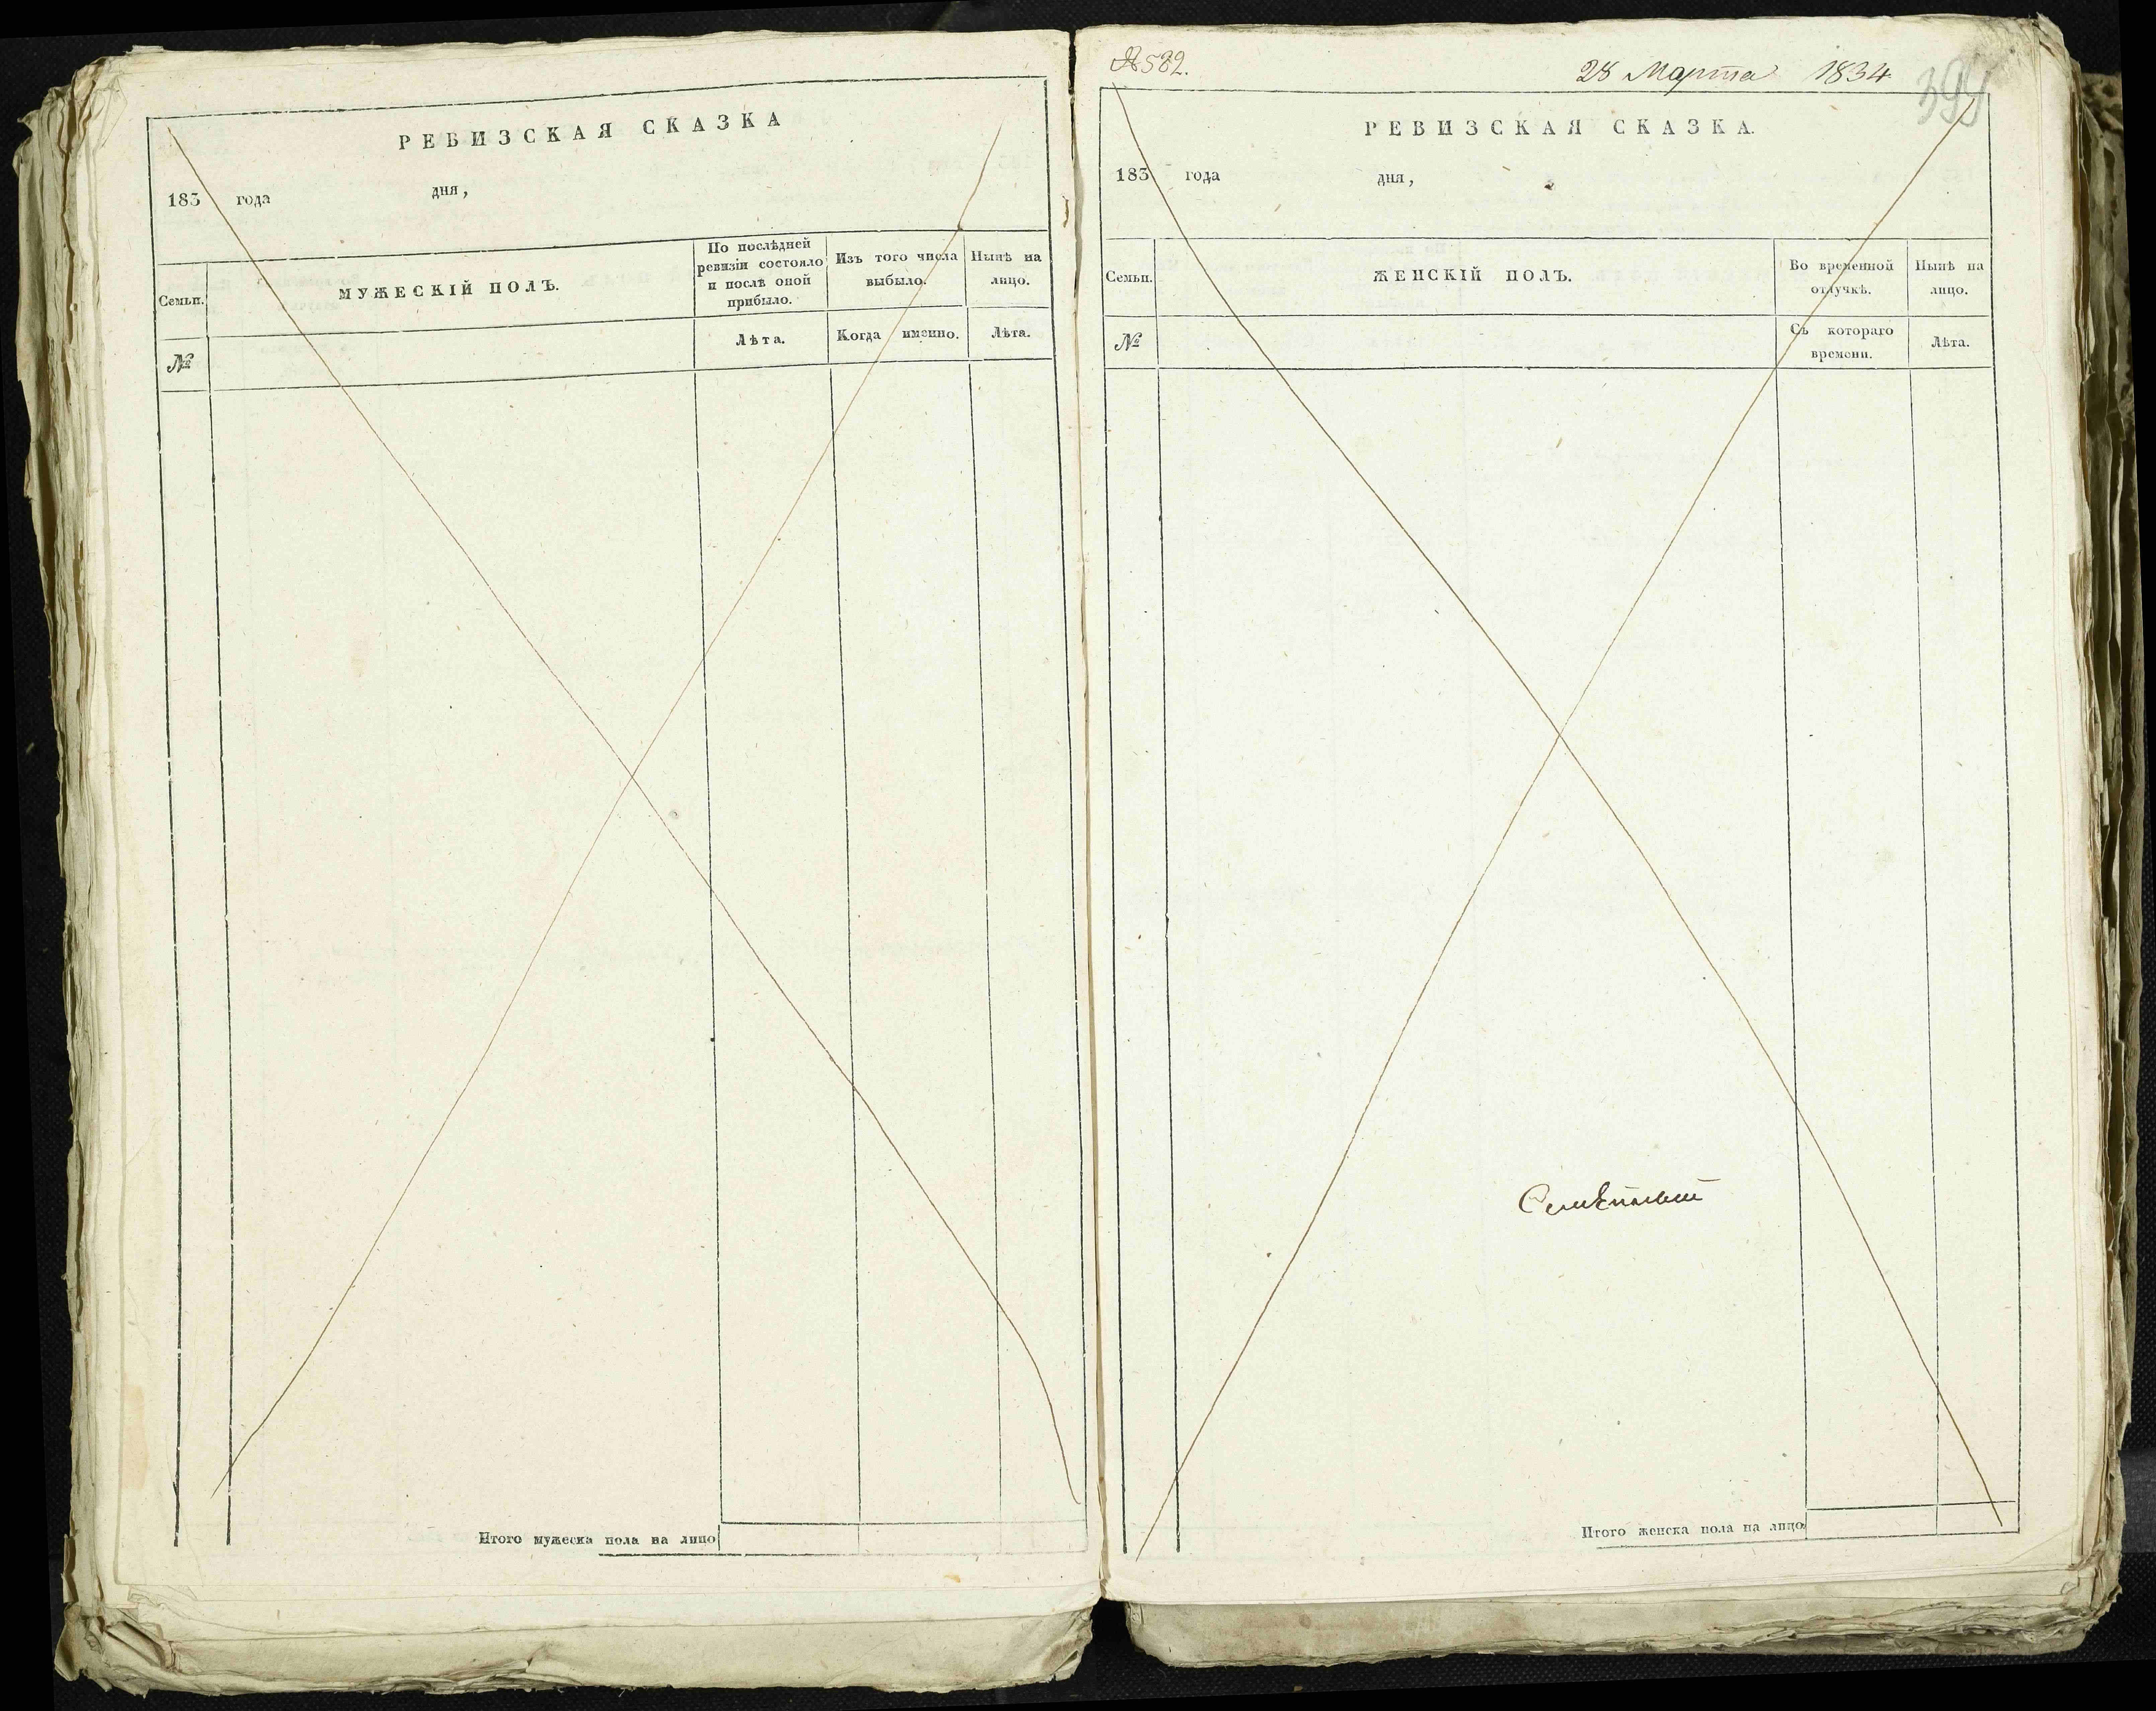 РЕВИЗСКАЯ СКАЗКА
183 года дня,
Семьи.
МУЖЕСКІЙ ПОЛЪ.
По послѣдней ревизіи состояло и послѣ оной прибыло.
Изъ того числа выбыло.
Нынѣ на лицо.
№
Лѣта.
Когда именно.
Лѣта.
Итого мужеска пола на лицо
№ 582.
28 Марта 1834
РЕВИЗСКАЯ СКАЗКА.
183 года дня,
Семьи.
ЖЕНСКІЙ ПОЛЪ.
Во временной отлучкѣ.
Нынѣ на лицо.
№
Съ котораго времени.
Лѣта.
Итого женска пола на лицо